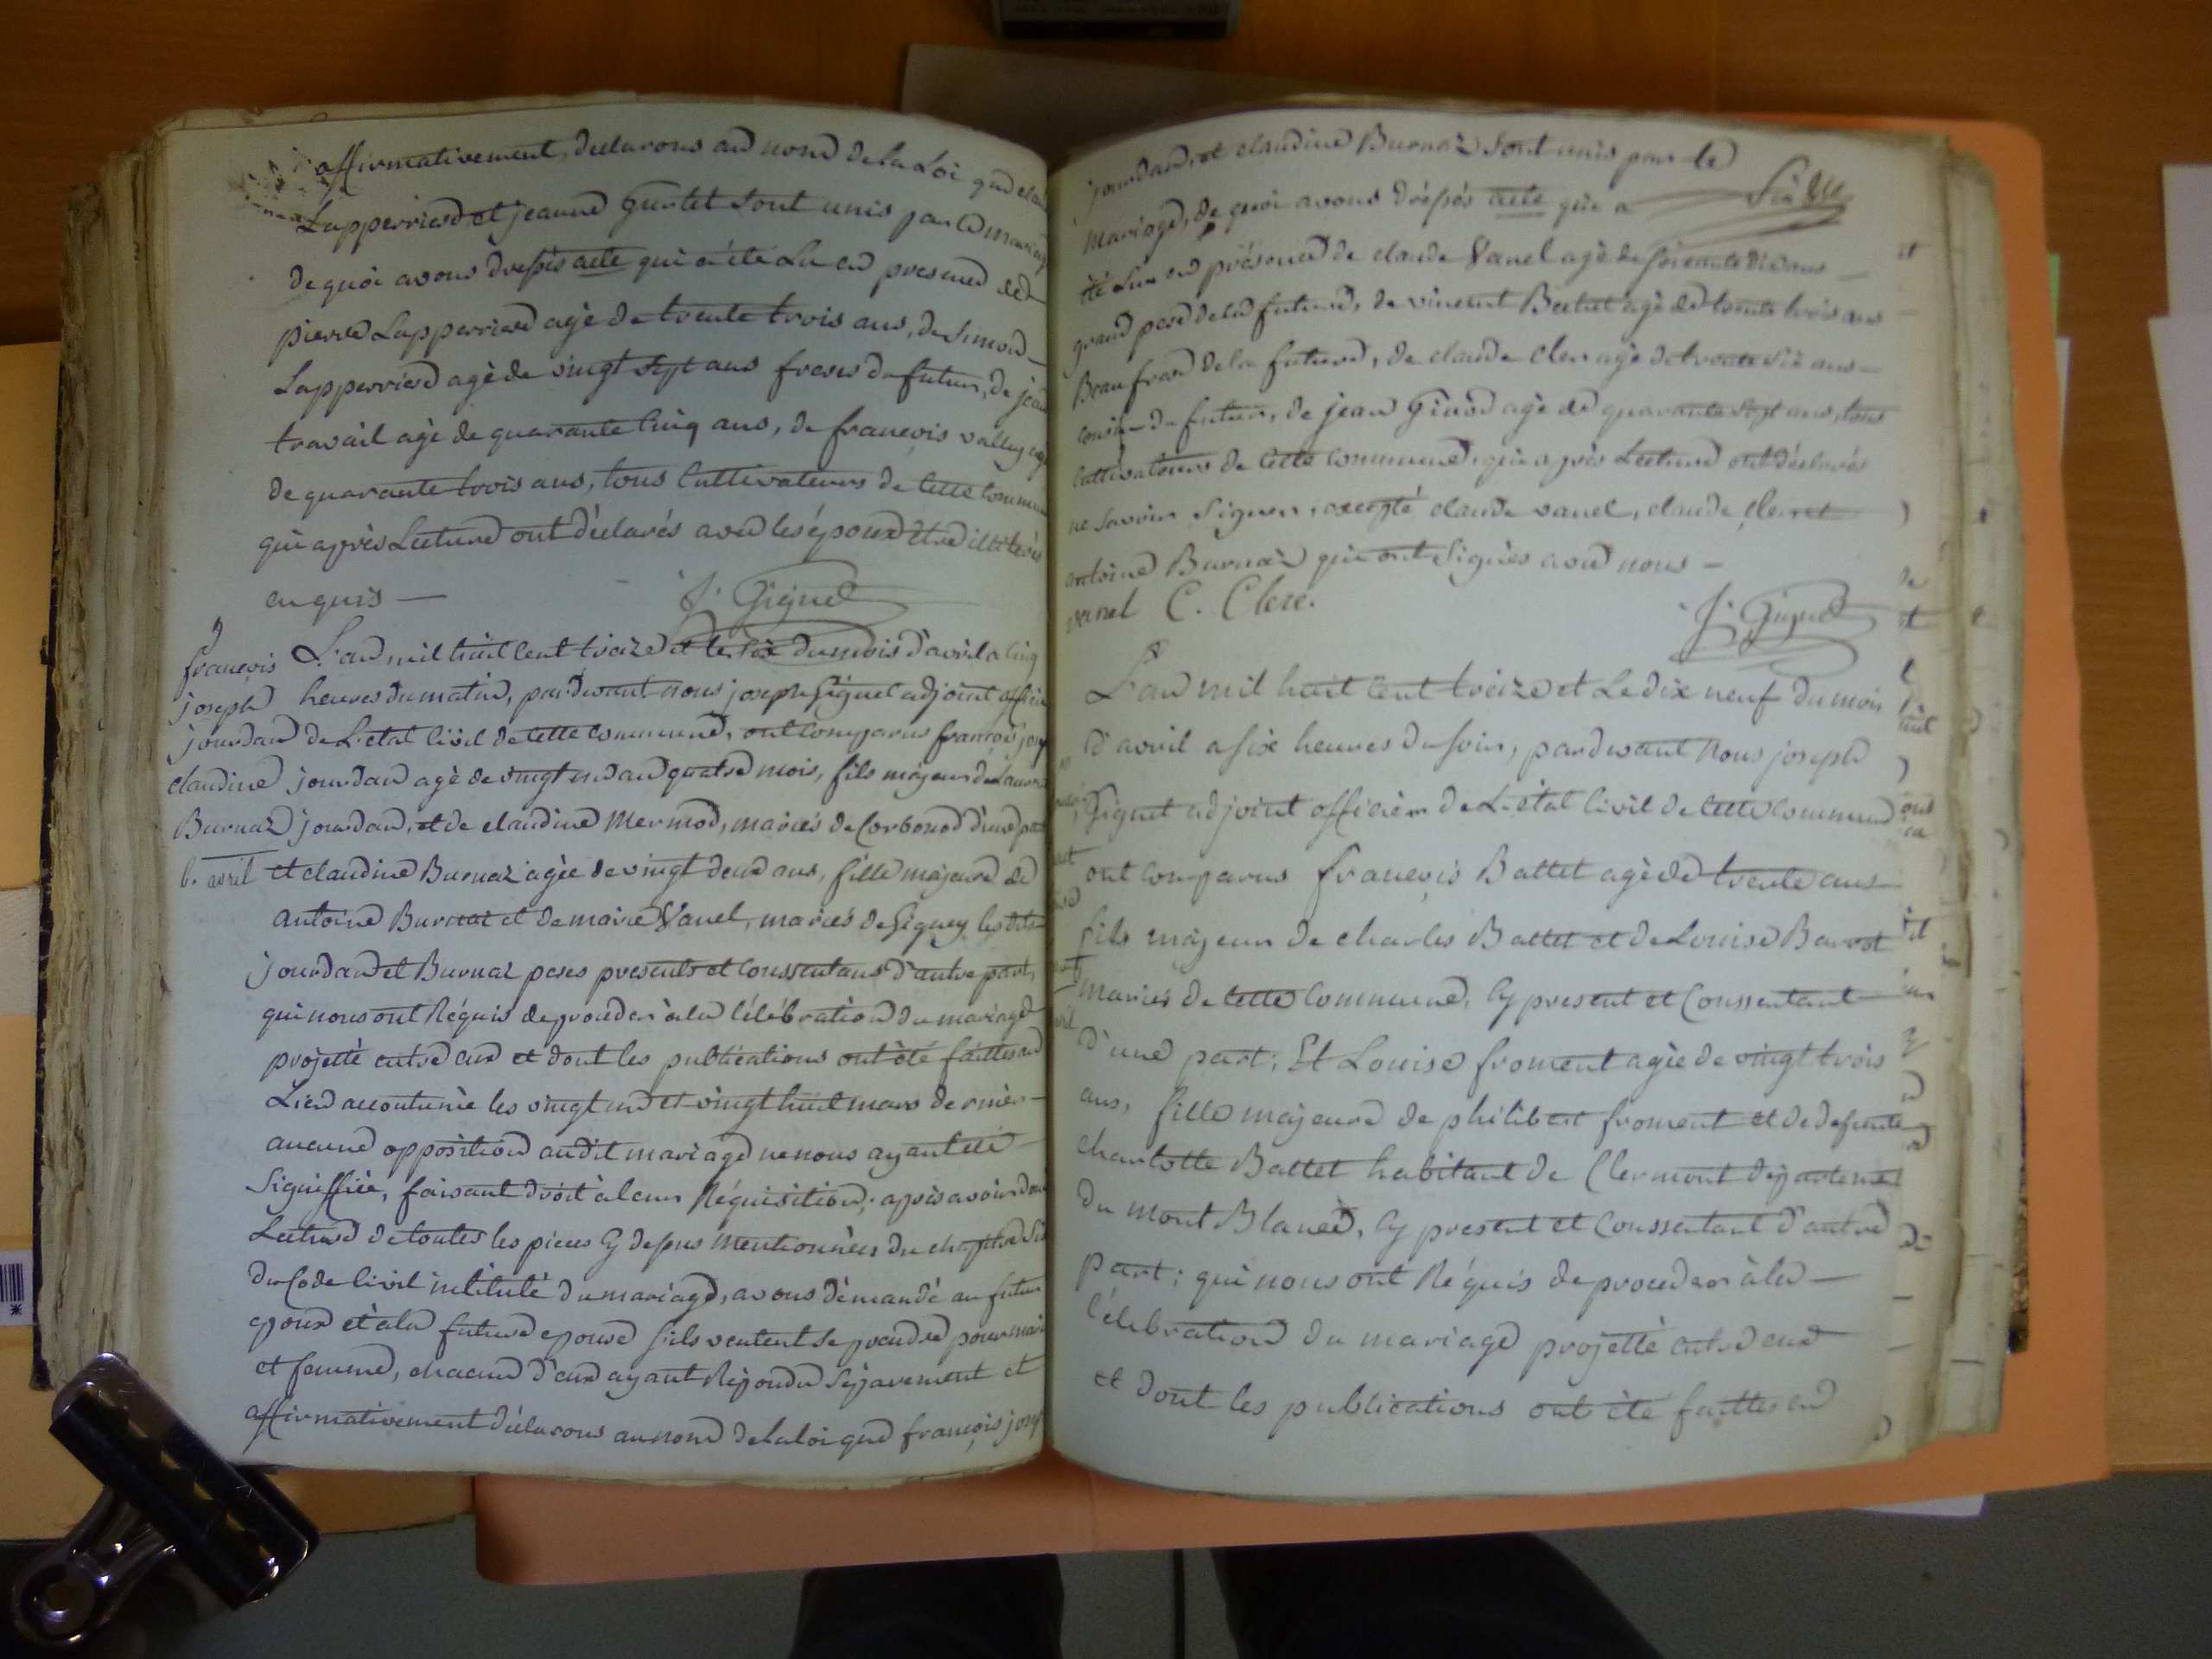 affirmativement, declarons au nom de la Loi que
Lapperriere et jeanne Gurtet sont unis par le mariage
de quoi avons dressés acte qui a été Lu en presence de
pierre Lapperriere agé de trente trois ans, de Simon
Lapperriere agé de vingt sept ans freres du futur, de jean
travail agé de quarante cinq ans, de françois vallet
de quarante trois ans, tous Cultivateurs de cette commune
qui après Lecture ont déclarés avec les époux être illitérés
enquis — J. Giguet
L'an mil huit cent treize et le six du mois d'avril a cinq
heures du matin, pardevant nous joseph Giguet adjoint officier
de L'etat civil de cette commune, ont comparus françois joseph
jourdan agé de vingt un an quatre mois, fils majeur de
jourdan, et de claudine Mermod, mariés de Corbonod d'une part
et claudine Burnaz agée de vingt deux ans, fille majeure de
antoine Burnaz et de marie Vanel, mariés de Gigney les dits
jourdan et Burnaz peres presents et consentans d'autre part,
qui nous ont Réquis de proceder à la célébration du mariage
projetté entre eux et dont les publications ont été faittes au
Lieu accoutumée les vingt un et vingt huit mars dernier
aucune opposition audit mariage ne nous ayant été
Signiffiée, faisant droit à leur Réquisition; après avoir donné
Lecture de toutes les pieces Cy dessus mentionnées du chapitre Six
du Code civil intitulé du mariage, avons démandé au futur
epoux et à la future epouse s'ils veulent se prendre pour mari
et femme, chacun d'eux ayant Répondu séparement et
affirmativement déclarons au nom de la loi que françois joseph
françois
joseph
jourdan
claudine
Burnaz
6. avril
jourdan, et claudine Burnaz Sont unis par le
mariage, de quoi avons dréssés acte qui a
été Lu en présence de claude Vanel agé de soixante dix ans
grand pere de la future, de vincent Bertet agé de trente trois ans
Beau frere de la future, de claude Clerc agé de trente six ans
cousin du futur, de jean Ginod agé de quarante sept ans, tous
cultivateurs de cette commune, qui après Lecture ont déclarés
ne savoir Signer, excepté claude vanel, claude Clerc et
antoine Burnaz qui ont Signés avec nous —
vanel C. Clerc. J. Giguet
L'an mil huit cent treize et Le dix neuf du mois
d'avril a six heures du soir, pardevant Nous joseph
Giguet adjoint officier de L'état civil de cette commune
ont comparus françois Battet agé de trente ans
fils majeur de charles Battet et de Louise Barrot
mariés de cette commune, Cy present et Consentant
d'une part; Et Louise froment agée de vingt trois
ans, fille majeure de philibert froment et de defunte
charlotte Battet habitant de Clermont departement
du mont Blanc, Cy present et consentant d'autre
part; qui nous ont Réquis de proceder à la —
célébration du mariage projetté entre eux
et dont les publications ont été faittes au